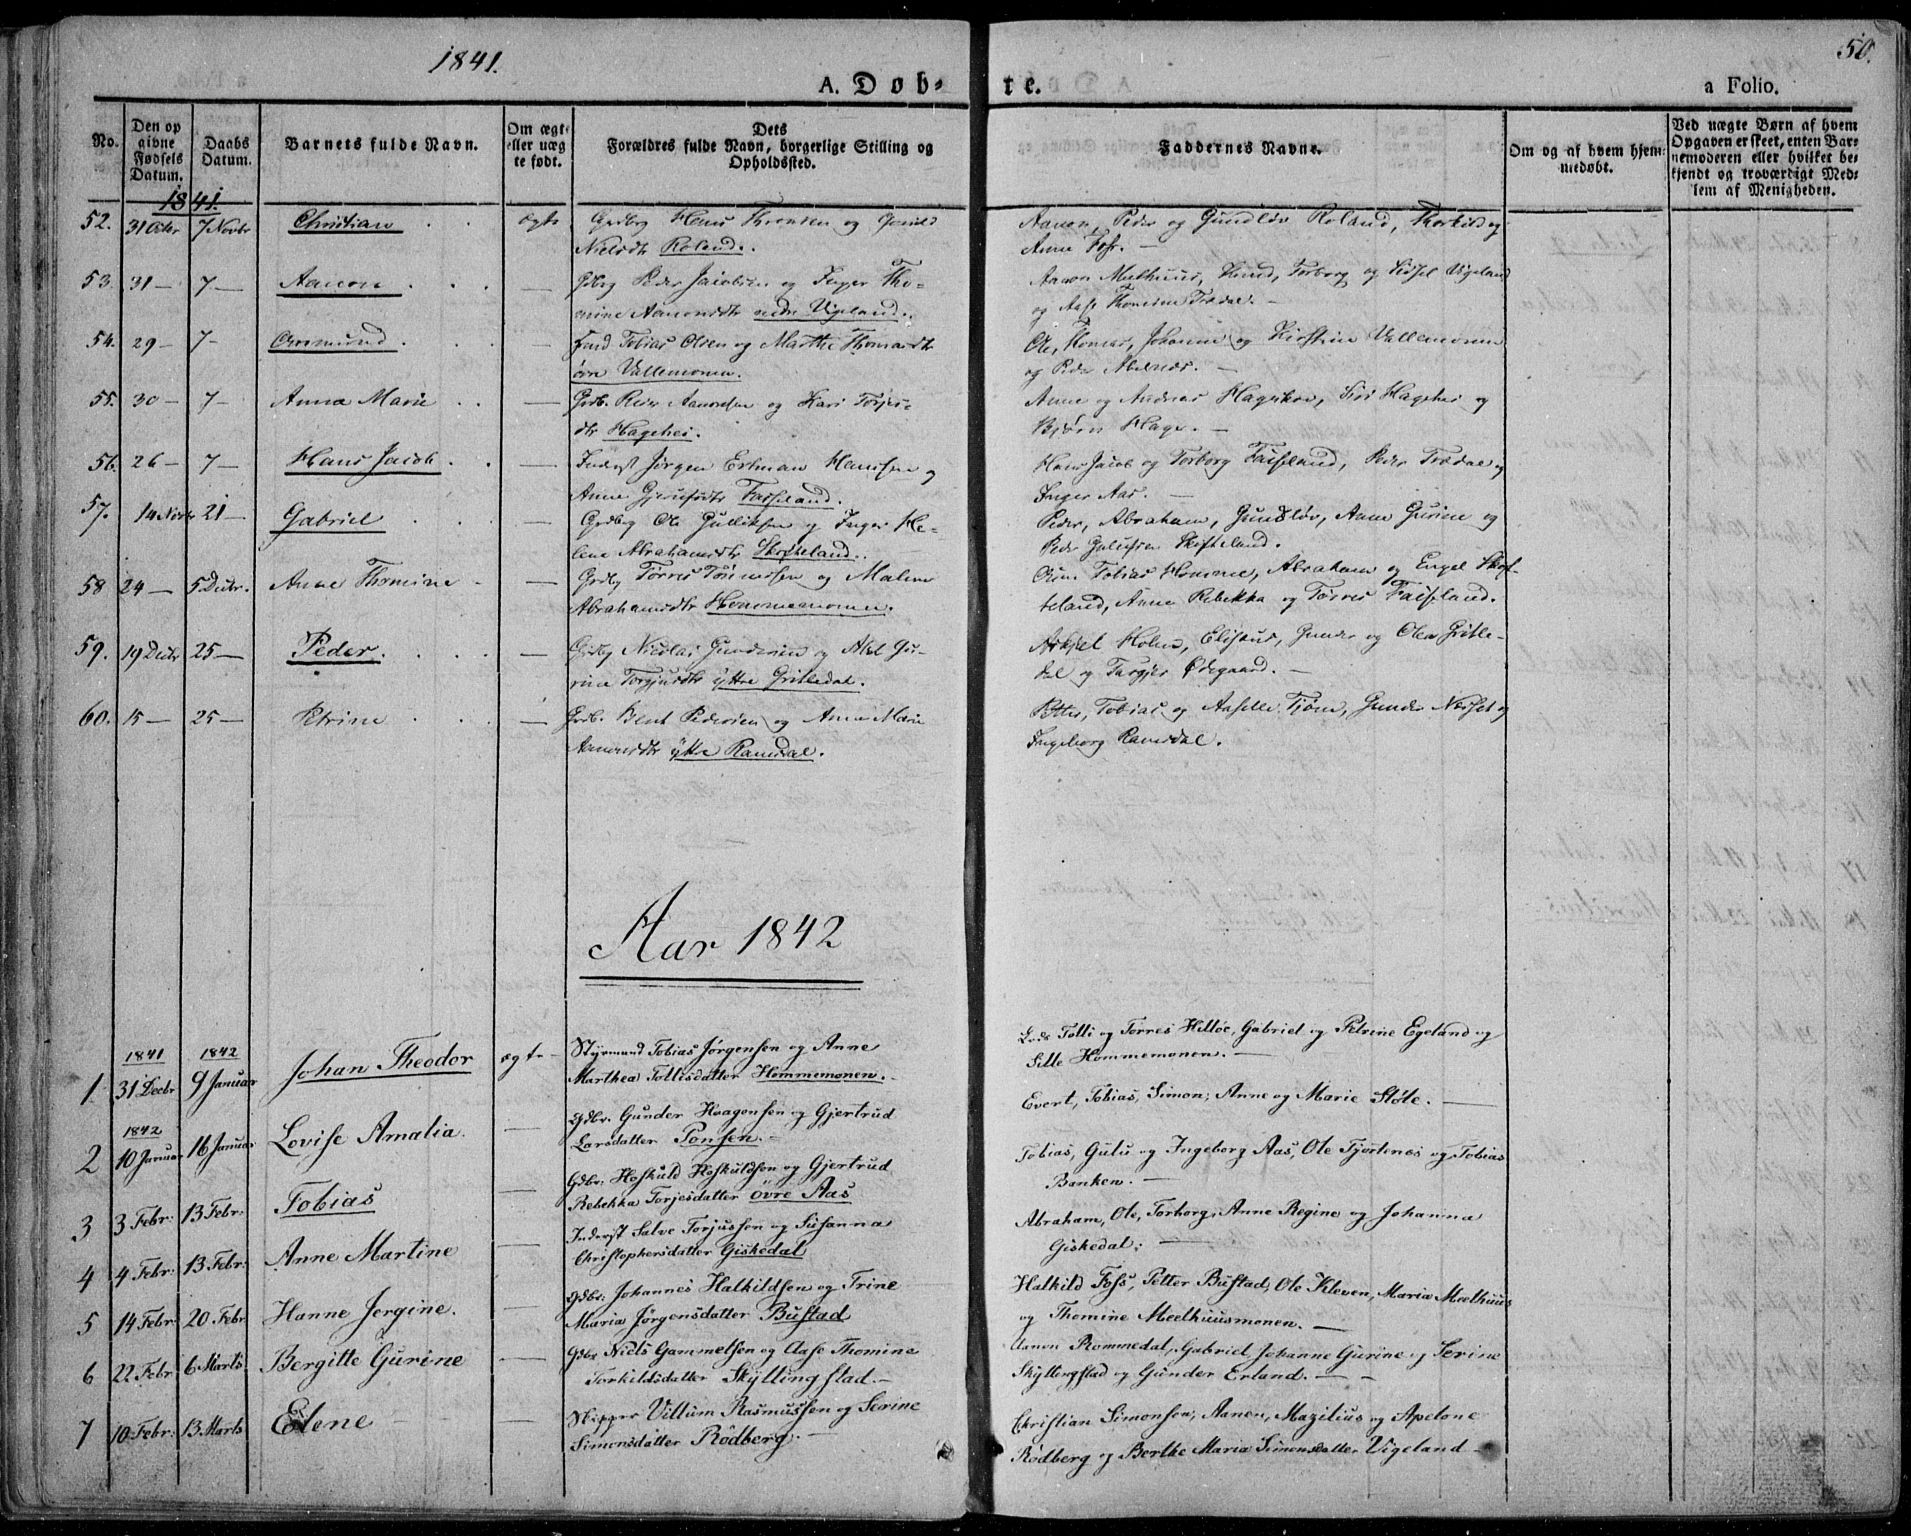 1841.
50.
A. Døb-
te.
a Folio.
No.
Den op
givne
Fødsels
Datum.
Daabs
Datum.
Barnets fulde Navn.
Om ægte
eller uæg
te født.
Dets
Forældres fulde Navn, borgerlige Stilling og
Opholdssted.
Faddernes Navne.
Om og af hvem hjem-
medøbt.
Ved uægte Børn af hvem
Opgaven er skeet, enten Bar-
nemoderen eller hvilket be-
kjendt og troværdigt Med-
lem af Menigheden.
1841.
52. 31 Octbr 7 Novbr Christian ægte Grdbg Hans Thronsen og Gunild
Nielsdtr Roland.
Aanon, Peder og Gundlöv Roland, Thorkild og
Anne Foss. —
53. 31 — 7 — Aanon — Gdbg Peder Jacobsen og Inger Tho-
mine Aanonsdtr nedre Vigeland.
Aanon Melhuus, Torborg og Sidsel Vigeland
og Aase Thomine Trædal. —
54. 29 — 7 — Osmund — Tobias Olsen og Marthe Thomasdtr
övre Vallemonen.
Ole, Tomas, Johanne og Kirstine Vallemonen
og Peder —
55. 30 — 7 — Anna Marie — Grdb. Peder Aanonsen og Kari Torjes-
dtr Hagehei.
Anne og Andreas Hageskov, Siri Hagehei og
Björn Hage. —
56. 26 — 7 — Hans Jacob — Inderst Jørgen Erhman Hanssen og
Anne Faiseland.
Hans Jacob og Torborg Faiseland, Peder Trædal og
Inger Aas. —
57. 14 Novbr 21 — Gabriel — Grdbg Ole Gulliksen og Inger He-
lene Abrahamsdtr Skofteland.
Peder, Abraham, Gundlöv, Anne Gurine og
Peder Skofteland.
58 24 — 5 Decbr. Anne Thomine — Grdbg Tørres Tönnessen og Malene
Abrahamsdtr Hommemonen.
Tobias Homme, Abraham og Engel Skof-
teland, Anne Rebekka og Tørres Faiseland.
59. 19 Decbr 25 — Peder — Grdbg Nicolai Gundersen og Abel Gu-
rine Torgjusdtr ytre Gritledal.
Askjel Holm, Eliseus, Gunder og Olea Gritle-
dal og Targjer Ødegaard. —
60. 15 — 25 — Petrine — Grdb. Bent Pedersen og Anne Marie
Aanonsdtr ytre Ramsdal.
Petter, Tobias og Aaselle Tjöm, Gunder Neset og
Ingeborg Ramsdal.
Aar 1842
1841 1842
1 31 Decbr 9 Januar Johan Theodor ægte — Styrmand Tobias Jørgensen og Anne
Marthea Tollisdatter Hommemonen. —
Lods Tolli og Torres Hilløe, Gabriel og Petrine Egeland og
Sille Hommemonen. —
1842
2 10 Januar 16 Januar Lovise Amalia. — Gdbr. Gunder Haagensen og Gjertrud
Larsdatter Ponsen. —
Evert, Tobias, Simon, Anne og Marie Stöle. —
3 3 Febr: 13 Febr: Tobias — Gdbr: Hoskuld Hoskuldsen og Gjertrud
Rebekka Torjesdatter övre Aas
Tobias, Gulu og Ingeborg Aas, Ole Tjortenes og Tobias
Banken. —
4 4 Febr: 13 Febr: Anne Martine — Inderst Salve Torjussen og Susanna
Christophersdatter Giskedal
Abraham, Ole, Torborg, Anne Regine og Johanna
Giskedal; —
5 14 Febr: 20 Febr: Hanne Jergine. — Gdbr: Johannes Halkildsen og Trine
Maria Jørgensdatter Bustad
Halkild Foss, Petter Bustad, Ole Kleven, Maria Moelhuus
og Thomine Meelhuusmonen. —
6 22 Febr: 6 Marts Bergitte Gurine — Gdbr Niels Gammelsen og Aase Thomine
Torkildsdatter Skyllingstad. —
Aanon Rommedal, Gabriel, Johanne Gurine og Serine
Skyllingstad og Gunder Erland. —
7 10 Febr: 13 Marts Elene — Skipper Villum Rasmussen og Serine
Simonsdatter Rödberg. —
Christian Simonsen, Aanen, Mazilius og Apelone
Rödberg og Berthe Maria Simonsdatter Vigeland —